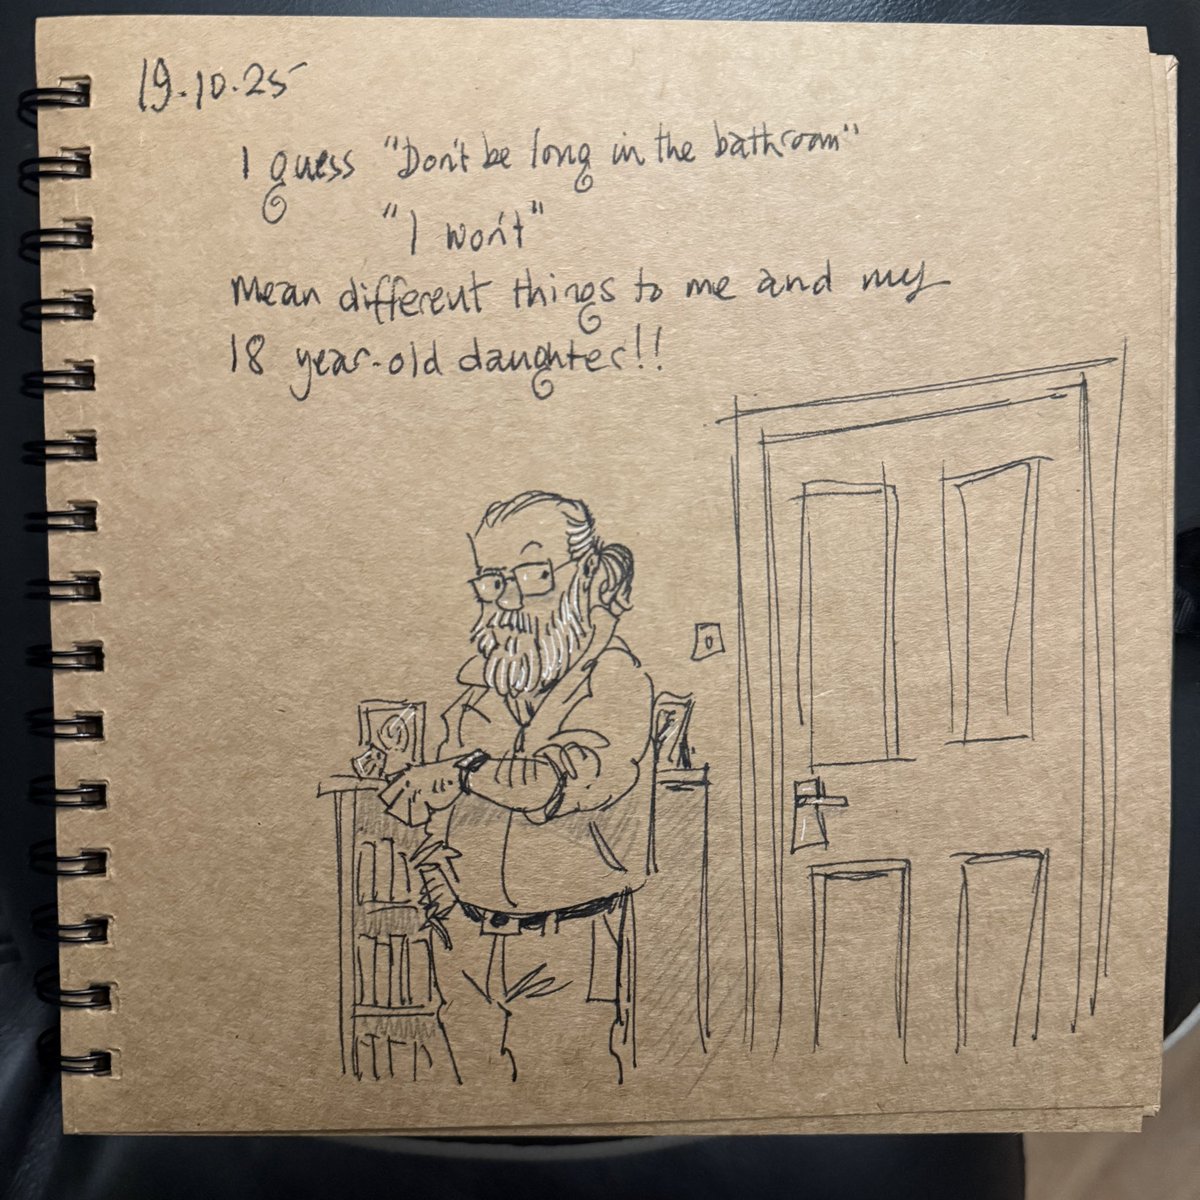 19.10.25
I guess "Don't be long in the bathroom"
"I won't"
mean different things to me and my
18 year-old daughter!!